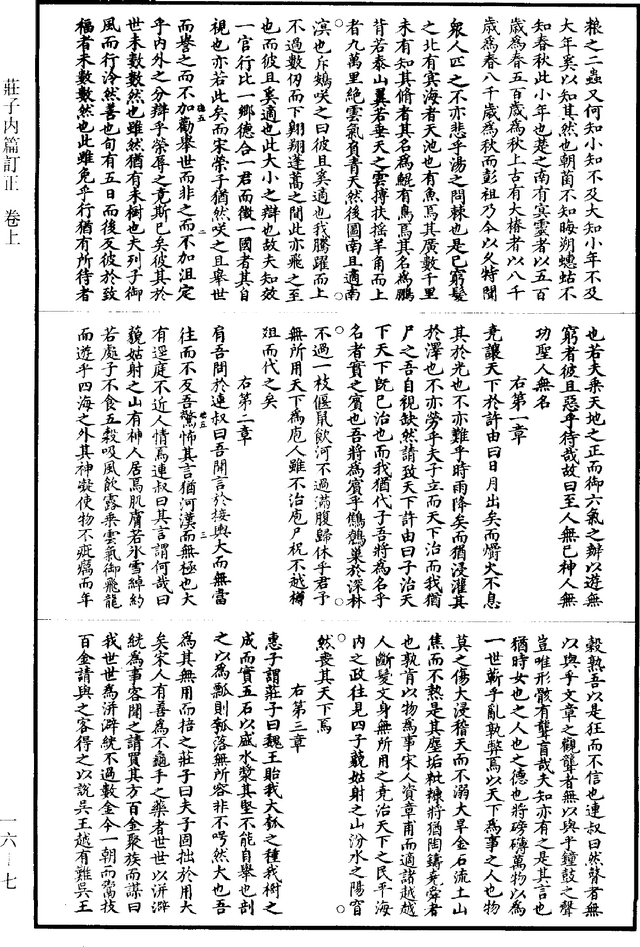 粮之二蟲又何知小知不及大知小年不及
大年奚以知其然也朝菌不知晦朔蟪蛄不
知春秋此小年也楚之南有冥靈者以五百
歲為春五百歲為秋上古有大椿者以八千
歲為春八千歲為秋而彭祖乃今以久特聞
衆人匹之不亦悲乎湯之問棘也是已窮髮
之北有冥海者天池也有魚焉其廣數千里
未有知其脩者其名為鯤有鳥焉其名為鵬
背若泰山翼若垂天之雲摶扶搖羊角而上
者九萬里絕雲氣負青天然後圖南且適南
溟也斥鴳笑之曰彼且奚適也我騰躍而上
不過數仞而下翺翔蓬蒿之間此亦飛之至
也而彼且奚適也此大小之辯也故夫知效
一官行比一鄉德合一君而徵一國者其自
視也亦若此矣而宋榮子猶然笑之且舉世
而譽之而不加勸舉世而非之而不加沮定
乎內外之分辯乎榮辱之竟斯已矣彼其於
世未數數然也雖然猶有未樹也夫列子御
風而行泠然善也旬有五日而後反彼於致
福者未數數然也此雖免乎行猶有所待者
也若夫乘天地之正而御六氣之辯以遊無
窮者彼且惡乎待哉故曰至人無已神人無
功聖人無名
右第一章
堯讓天下於許由曰日月出矣而爝火不息
其於光也不亦難乎時雨降矣而猶浸灌其
於澤也不亦勞乎夫子立而天下治而我猶
尸之吾自視缺然請致天下許由曰子治天
下天下既已治也而我猶代子吾將為名乎
名者實之賓也吾將為賓乎鷦鷯巢於深林
不過一枝偃鼠飲河不過滿腹歸休乎君予
無所用天下為庖人雖不治庖尸祝不越樽
俎而代之矣
右第二章
肩吾問於連叔曰吾聞言於接輿大而無當
往而不反吾驚怖其言猶河漢而無極也大
有逕庭不近人情焉連叔曰其言謂何哉曰
藐姑射之山有神人居焉肌膚若氷雪綽約
若處子不食五穀吸風飲露乘雲氣御飛龍
而遊乎四海之外其神凝使物不疵癘而年
穀熟吾以是狂而不信也連叔曰然瞽者無
以與乎文章之觀聾者無以與乎鐘鼓之聲
豈唯形骸有聾盲哉夫知亦有之是其言也
猶時女也之人也之德也將磅礴萬物以為
一世蘄乎亂孰弊弊焉以天下為事之人也物
莫之傷大浸稽天而不溺大旱金石流土山
焦而不熱是其塵垢粃糠將猶陶鑄堯舜者
也孰肯以物為事宋人資章甫而適諸越越
人斷髮文身無所用之堯治天下之民平海
內之政往見四子藐姑射之山汾水之陽窅
然喪其天下焉
右第三章
惠子謂莊子曰魏王貽我大瓠之種我樹之
成而實五石以盛水漿其堅不能自舉也剖
之以為瓢則瓠落無所容非不呺然大也吾
為其無用而掊之莊子曰夫子固拙於用大
矣宋人有善為不龜手之藥者世世以洴澼
絖為事客聞之請買其方百金聚族而謀曰
我世世為洴澼絖不過數金今一朝而鬻技
百金請與之客得之以說吳王越有難吳王
莊子內篇訂正 卷上
一六-七